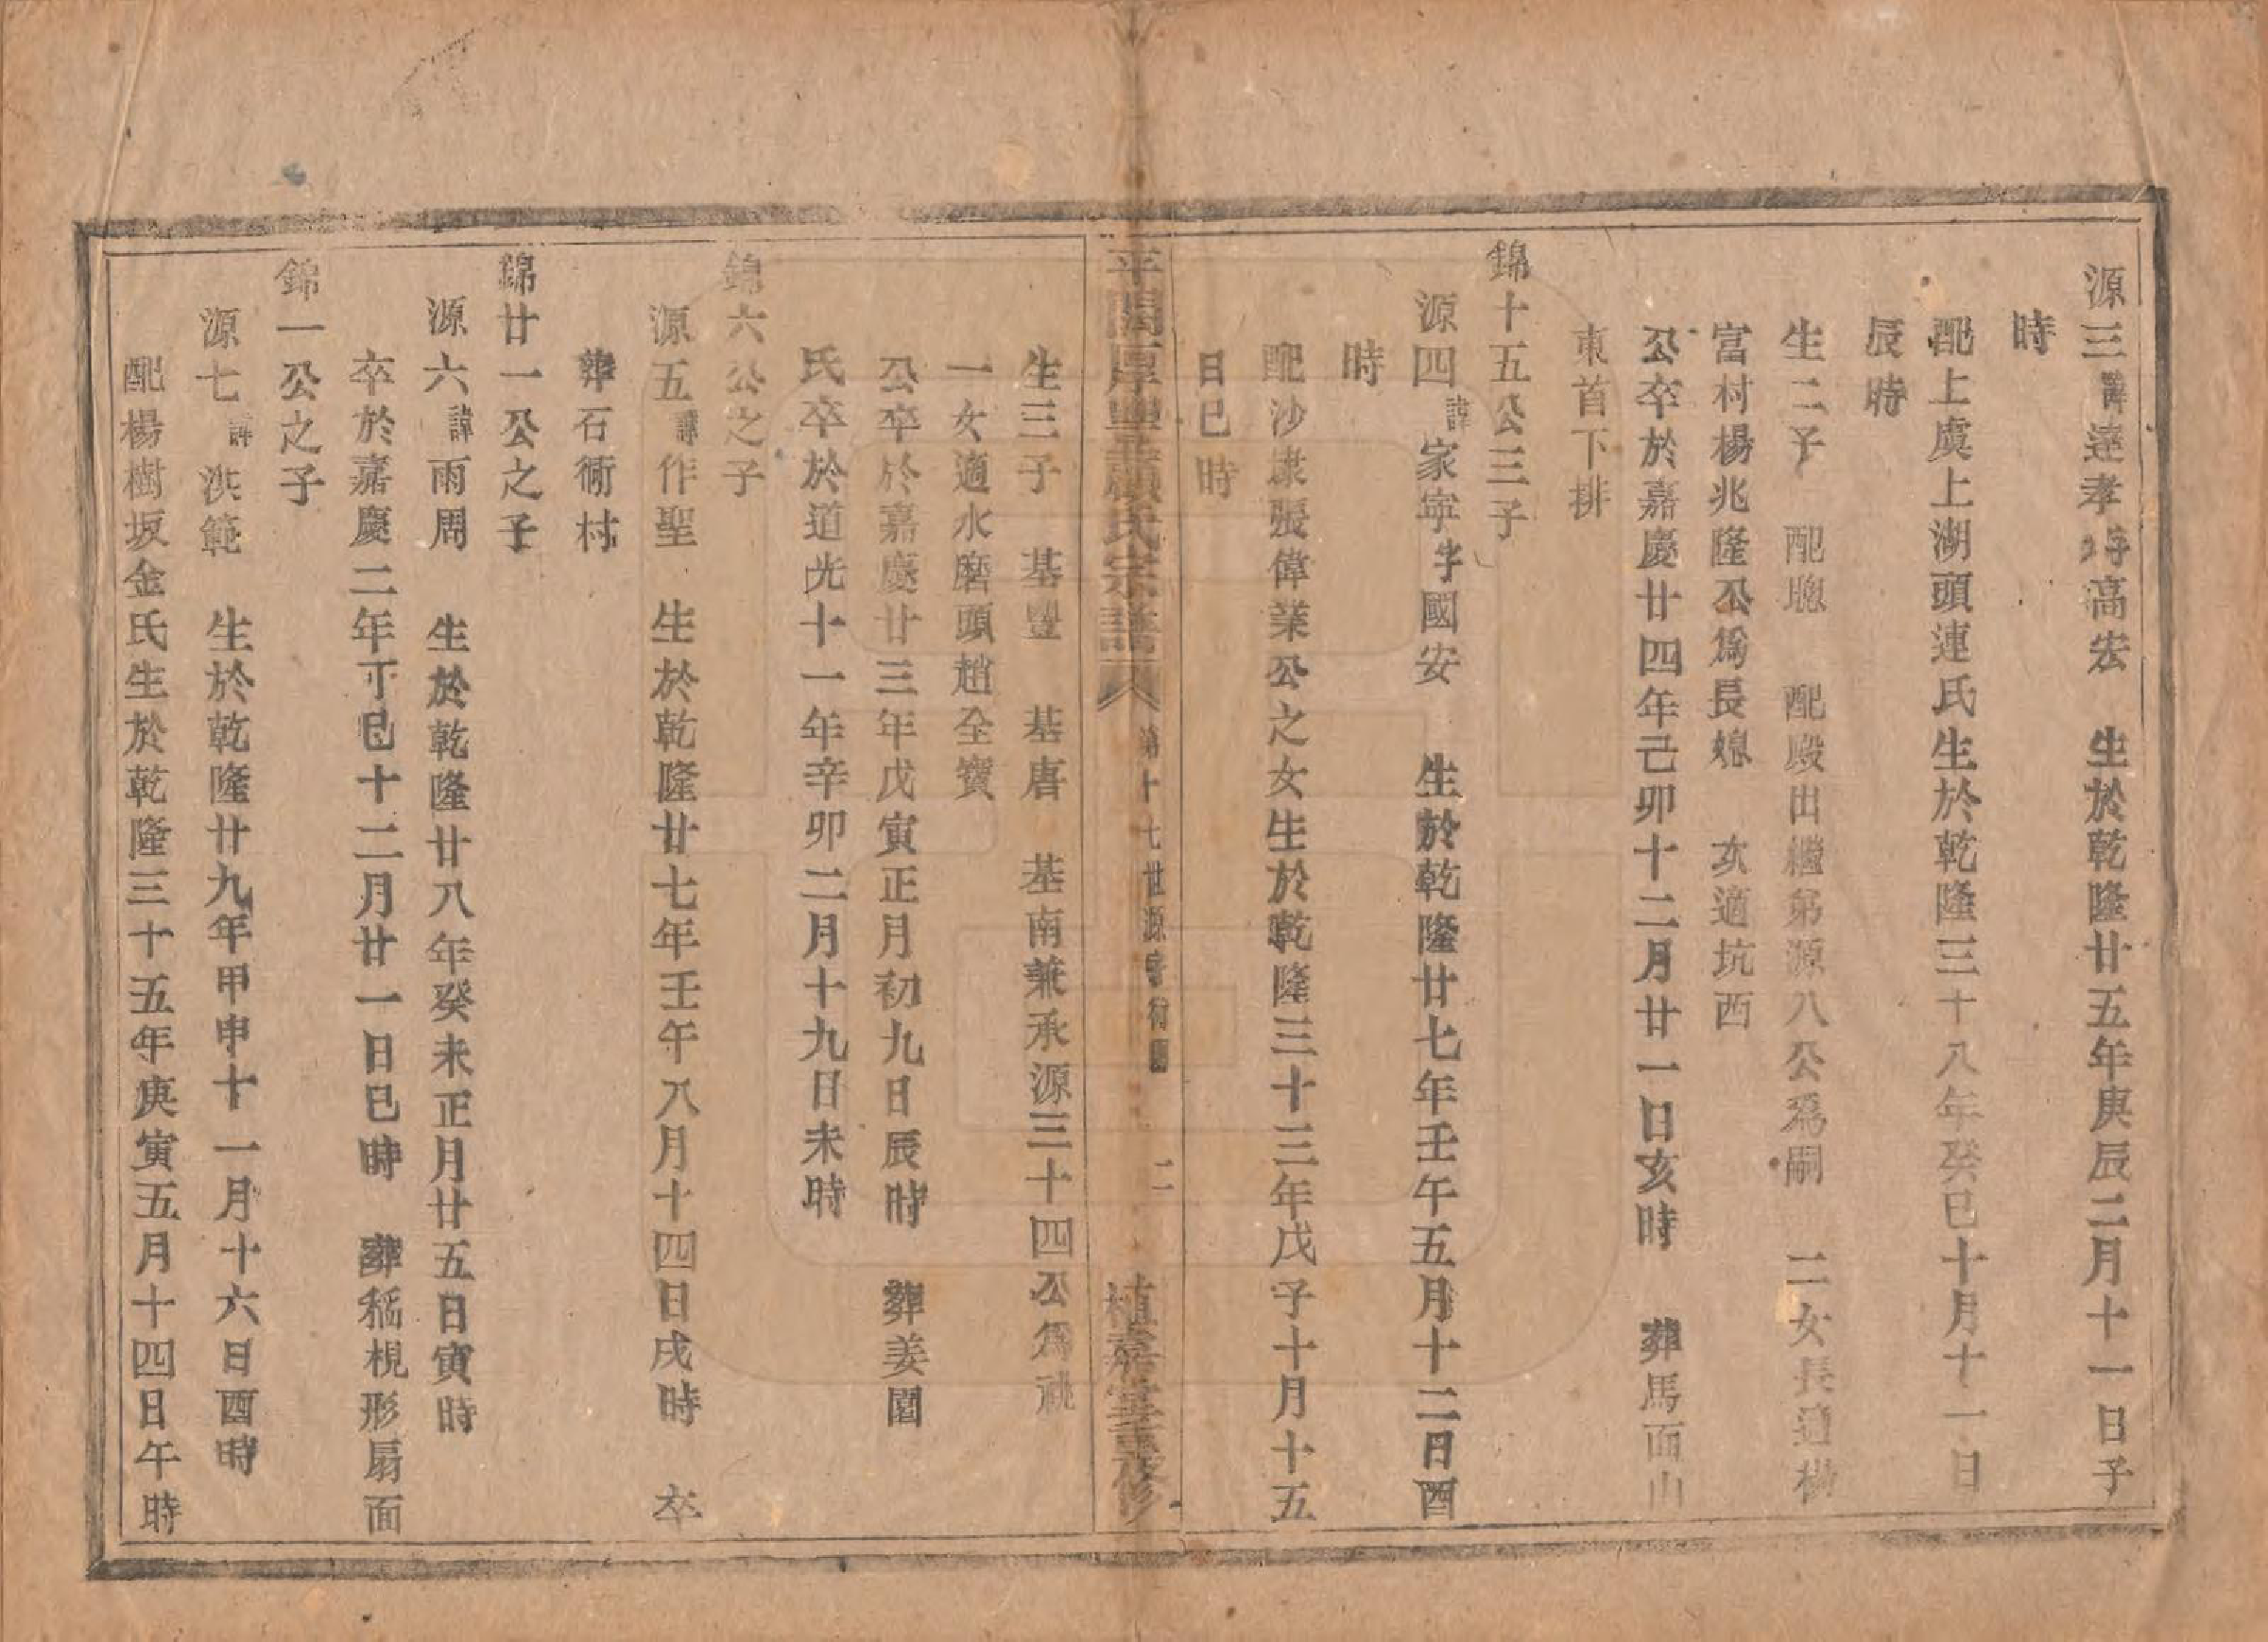 源三諱達孝字高宏　生於乾隆廿五年庚辰二月十一日子
時
配上虞上湖頭連氏生於乾隆三十八年癸巳十月十一日
辰時
生二子　配聰　配殿出繼弟源八公爲嗣　二女長適橫
富村楊兆隆公爲長媳　次適坑西
公卒於嘉慶廿四年己卯十二月廿一日亥時　葬馬面山
東首下排
錦十五公三子
源四諱家寧字國安　生於乾隆廿七年壬午五月十二日酉
時
配沙埭張偉業公之女生於乾隆三十三年戊子十月十五
日巳時
平閣厚豐王顧氏宗譜　第十七世源字行　二　植嘉堂重修
生三子　基豐　基唐　基南兼承源三十四公爲祧
一女適水磨頭趙全寶
公卒於嘉慶廿三年戊寅正月初九日辰時　葬姜園
氏卒於道光十一年辛卯二月十九日未時
錦六公之子
源五諱作聖　生於乾隆廿七年壬午八月十四日戌時　卒
葬石衕村
錦廿一公之子
源六諱雨周　生於乾隆廿八年癸未正月廿五日寅時
卒於嘉慶二年丁巳十二月廿一日巳時　葬稻梘形扇面
錦一公之子
源七諱洪範　生於乾隆廿九年甲申十一月十六日酉時
配楊樹坂金氏生於乾隆三十五年庚寅五月十四日午時